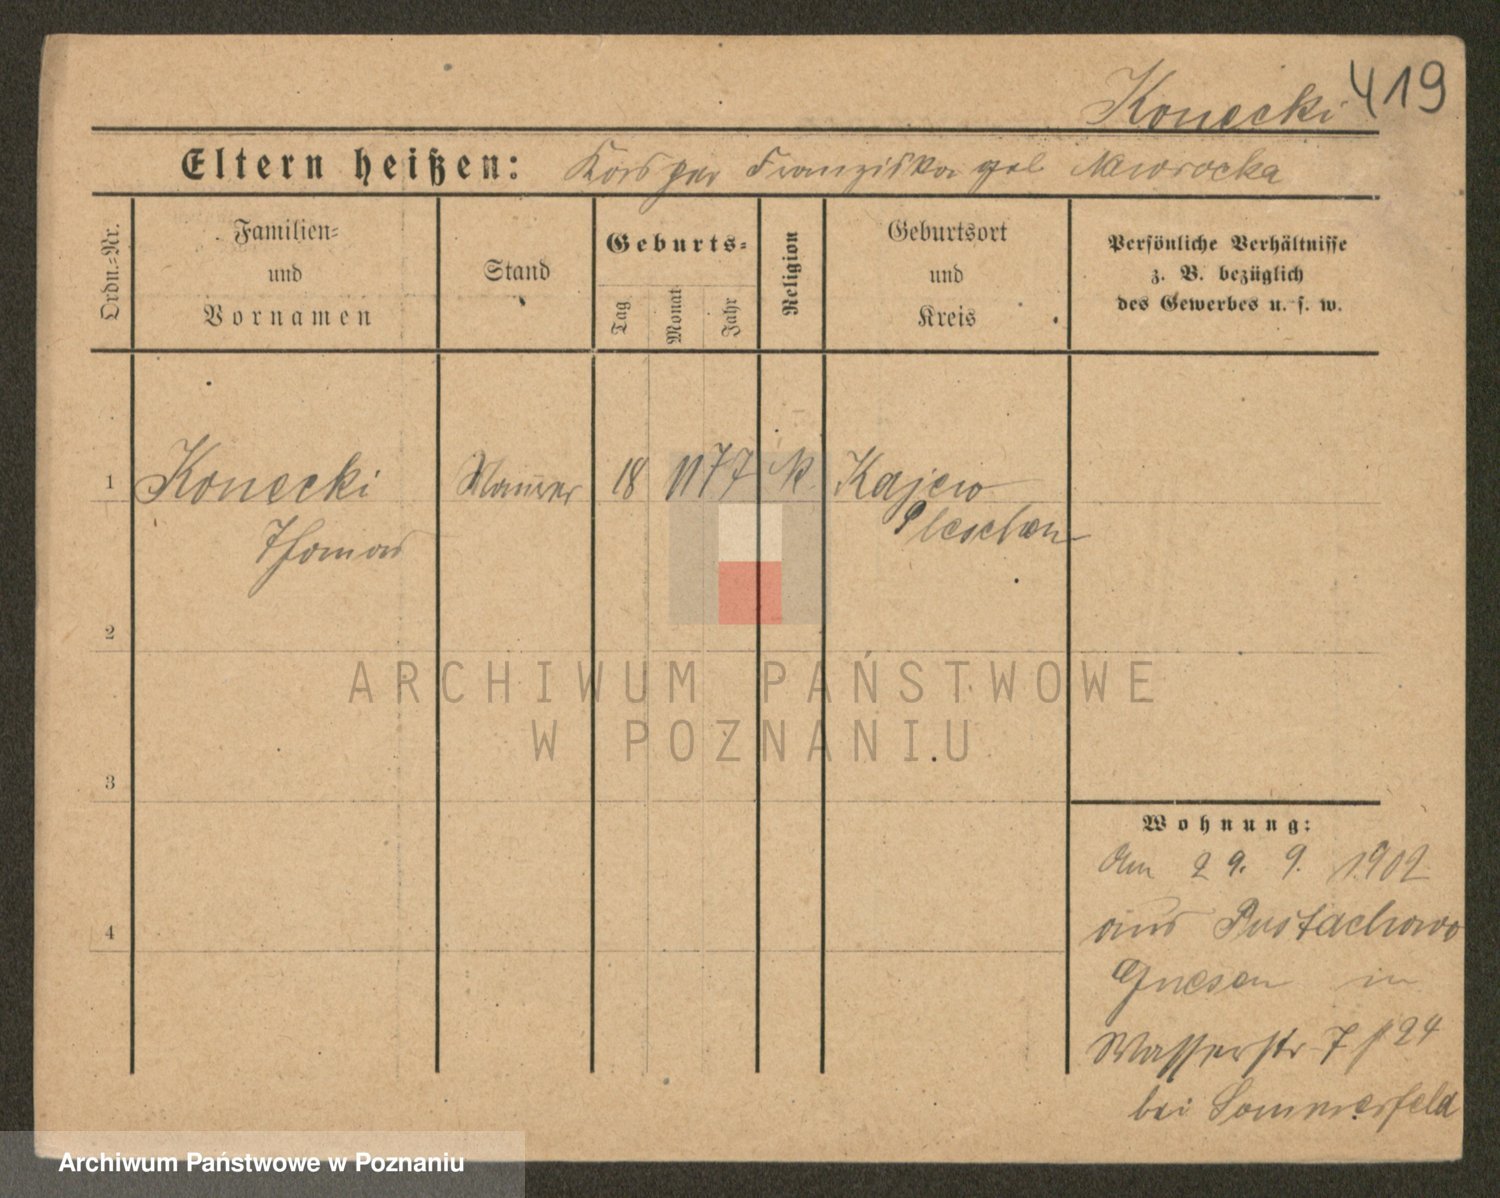 Konecki 419
Eltern heißen: Kasper Franziska geb Nawrocka
Ordn.-Nr.
Familien-
und
Vornamen
Stand
Geburts-
Tag
Monat
Jahr
Religion
Geburtsort
und
Kreis
Persönliche Verhältnisse
z. B. bezüglich
des Gewerbes u. s. w.
1 Konecki Maurer 18 11 77 k Kajew
Thomas Pleschen
2
3
4
Wohnung:
Am 29. 9. 1902
aus Pustachowo
Gnesen in
Wasserstr 7 / 24
bei Sommerfeld
ARCHIWUM PAŃSTWOWE
W POZNANIU
Archiwum Państwowe w Poznaniu